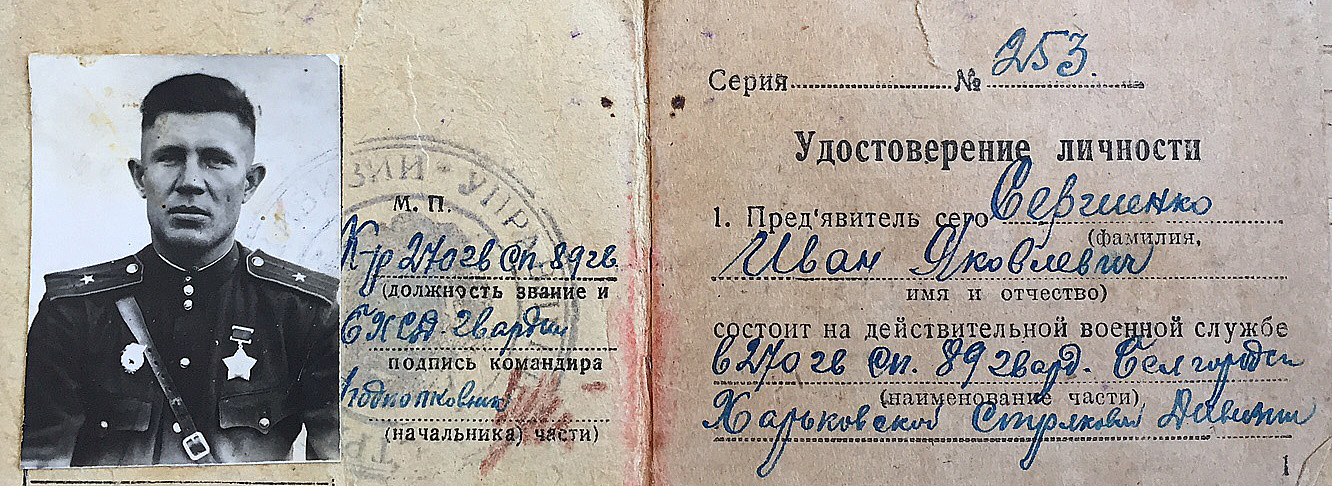 ВИЗИИ - УПР
М. П.
К-р 270 гв сп. 89 гв
(должность звание и
БХСД. гвардии
подпись командира
Подполковник
(начальника) части)
Серия № 253.
Удостоверение личности
1. Пред'явитель сего Сергиенко
(фамилия,
Иван Яковлевич
имя и отчество)
состоит на действительной военной службе
в 270 гв сп. 89 гвард. Белгородско
(наименование части)
Харьковской Стрелковой Дивизии
1